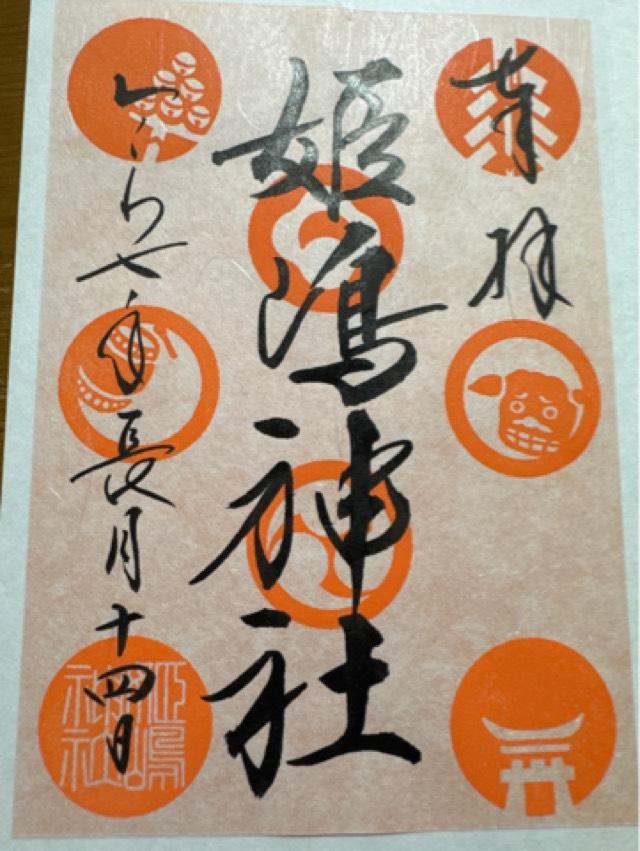 奉拝
姫嶋神社
令和七年長月十四日
姫嶋神社